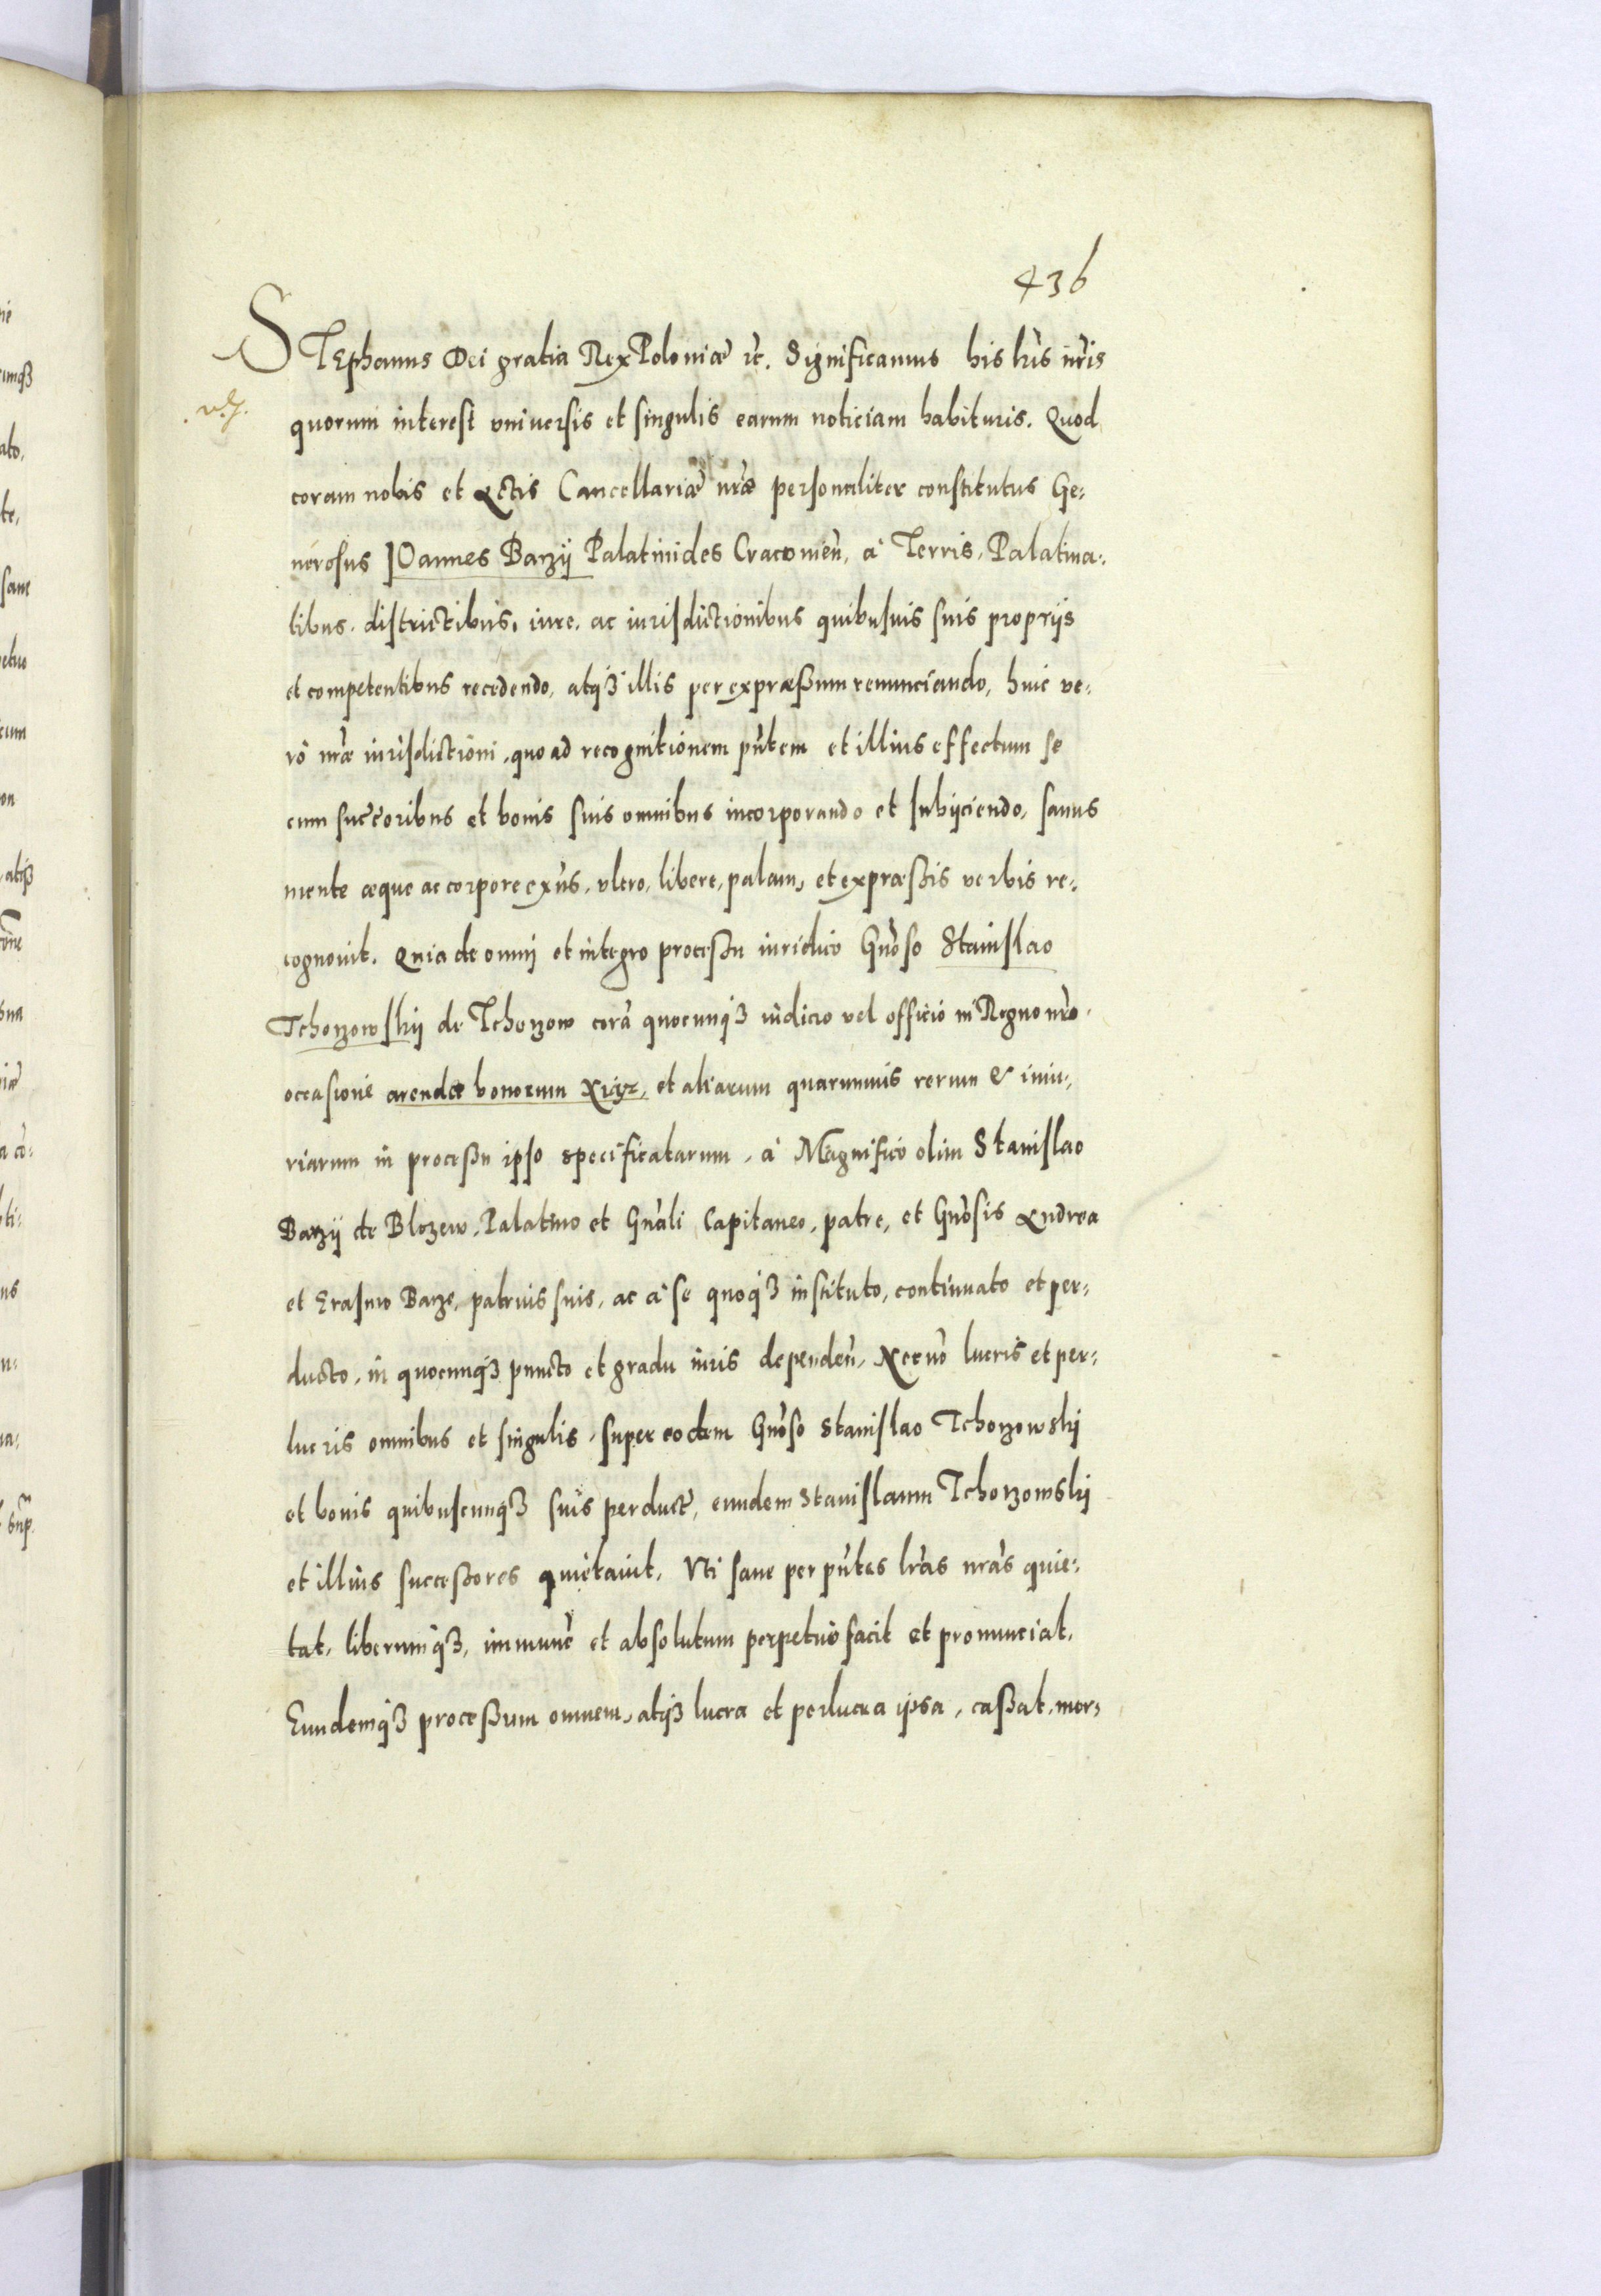 436
STEphanus Dei gratia Rex Poloniæ etc. Significamus his lr̃is nr̃is
quorum interest vniversis et singulis earum noticiam habituris. Quod
coram nobis et Actis Cancellariæ nr̃æ personaliter constitutus Ge=
nerosus IOannes Barzij Palatinides Cracouien̄, à Terris, Palatina=
tibus, districtibus, iure, ac iurisdictionibus quibusuis suis proprijs
et competentibus recedendo, atq3 illis per expræßum renunciando, huic ve=
rò nr̃æ iurisdictioni, quo ad recognitionem pn̄tem et illius effectum se
cum succ̄oribus et bonis suis omnibus incorporando et subijciendo, sanus
mente æque ac corpore exn̄s, vltro, libere, palam, et expræßis verbis re=
cognouit. Quia de omnj et integro proceßu iuridico Gn̄oso Stanislao
Tchorzowskij de Tchorzow corā quocunq3 iudicio vel officio in Regno nr̃o,
occasione arendæ bonorum Xiąz, et aliarum quarumuis rerum & iniu=
riarum in proceßu ipso specificatarum, à Magnifico olim Stanislao
Barzij de Blozew, Palatino et Gn̄ali Capitaneo, patre, et Gn̄osis Andrea
et Erasmo Barze, patruis suis, ac à se quoq3 instituto, continuato et per=
ducto, in quocunq3 puncto et gradu iuris dependen̄, Necnō lucris et per=
lucris omnibus et singulis, super eodem Gn̄oso Stanislao Tchorzowskj
et bonis quibuscunq3 suis perduct̄, eundem Stanislaum Tchorzowskj
et illius succeßores quietauit, Vti sane per pn̄tes lr̃as nr̃as quie=
tat, liberumq3, immunē et absolutum perpetuò facit et pronunciat,
Eundemq3 proceßum omnem, atq3 lucra et perlucra ipsa, caßat, mor=